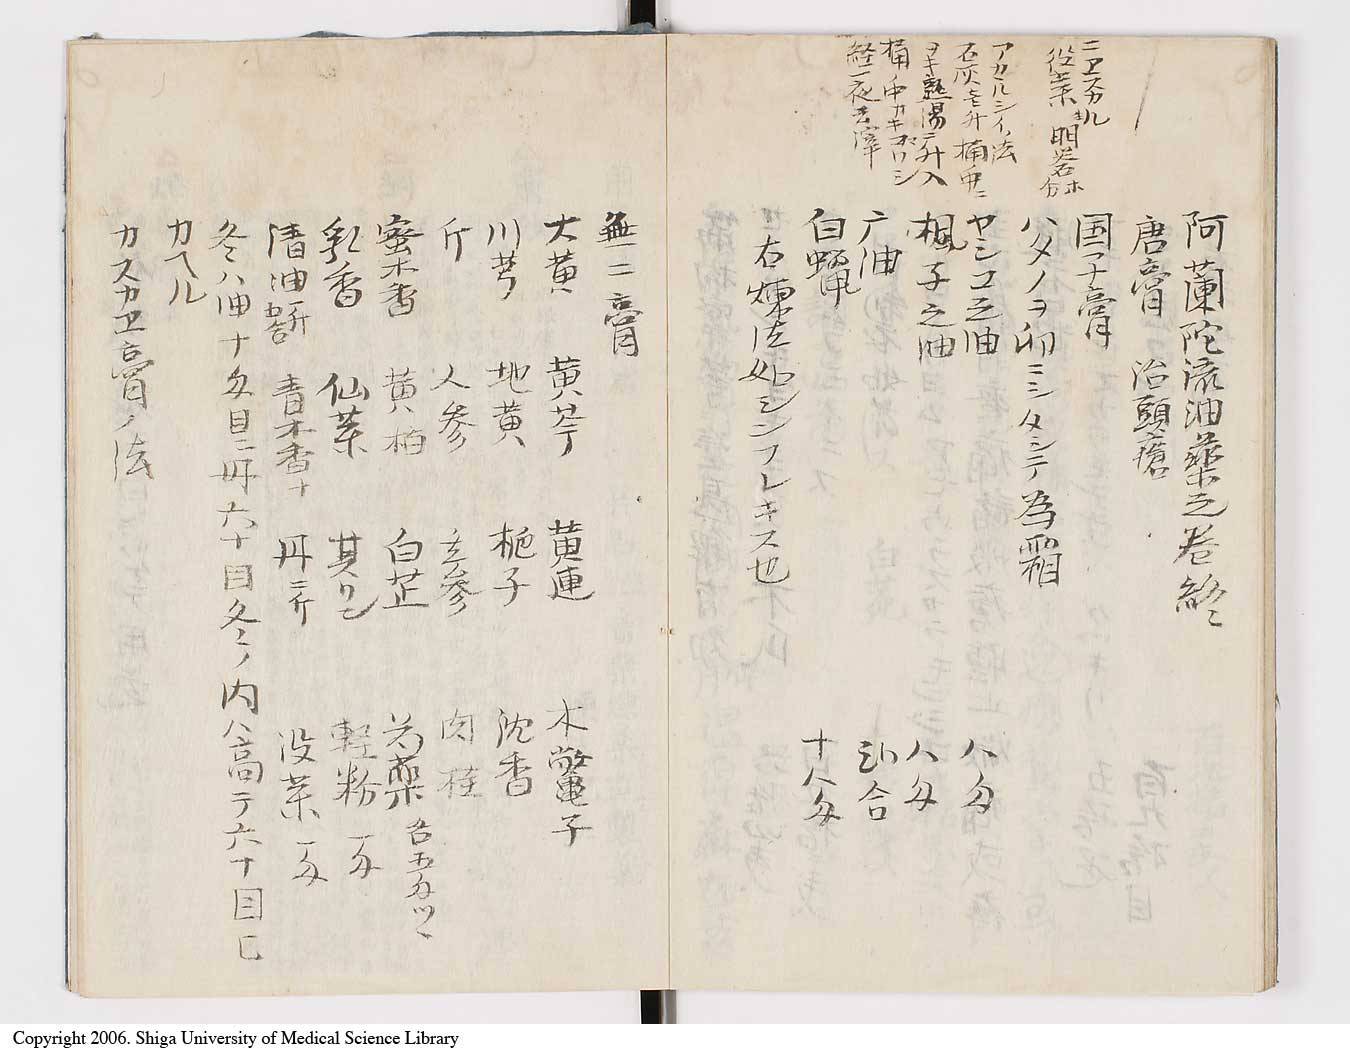 ニヱスカル
役素 明者
アカルシイノ法
石灰壱升 桶中ニ
ヲキ熱湯二升入
桶中カキマワシ
経一夜去滓
阿蘭陀流油薬之巻終
唐膏 治頭瘡
国マ子膏
ハタノヲ卯ニシタシテ為霜
ヤシヨ之油 八匁
楓子之油 八匁
广油 合
白蝋 十八匁
右煉法如シンフレキス也
無二膏
大黄 黄芩 黄連 木鼈子
川芎 地黄 梔子 沈香
斤 人参 玄参 肉桂
蜜木香 黄柏 白芷 芍薬 各五匁ツヽ
乳香 仙菜 其リン 軽粉 一匁
清油 青木香十 丹 没薬 一匁
冬ハ油十匁目ニ丹六十目冬ノ内ハ高テ六十目ヒ
カヘル
カスカヱ膏ノ法
Copyright 2006. Shiga University of Medical Science Library